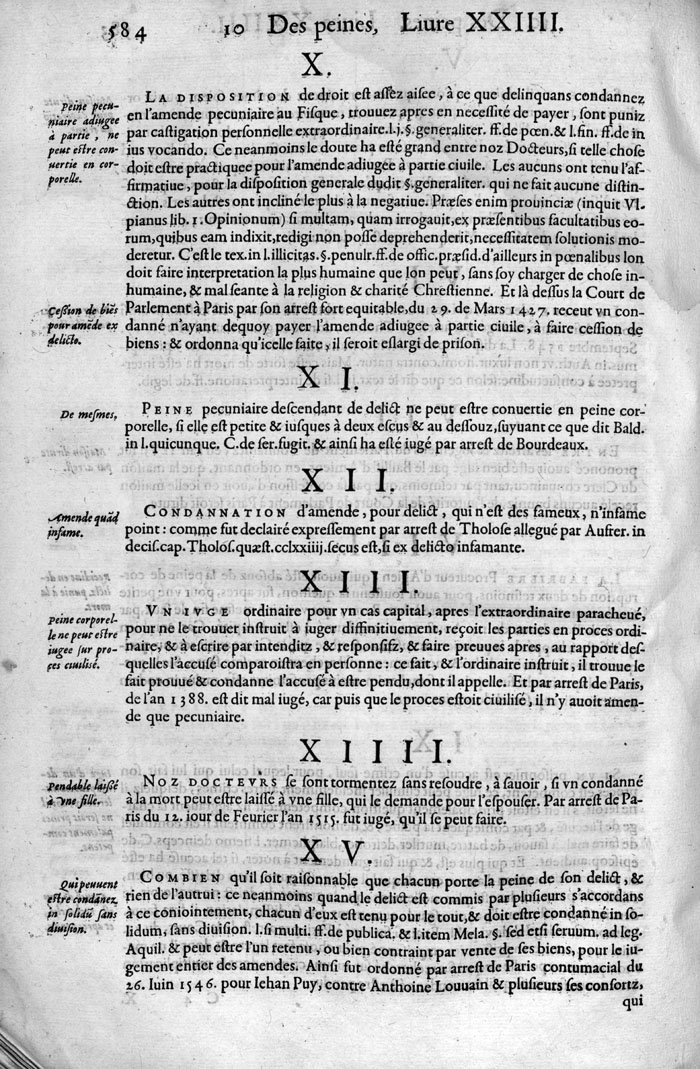 584 10 Des peines, Liure XXIIII.
X.
Peine pecu-
niaire adiugee
à partie, ne
peut estre con-
uertie en cor-
porelle.
LA DISPOSITION de droit est assez aisee, à ce que delinquans condannez
en l'amende pecuniaire au Fisque, trouuez apres en necessité de payer, sont puniz
par castigation personnelle extraordinaire.l.j.§.generaliter. ff.de pœn.& l.fin. ff.de in
ius vocando. Ce neanmoins le doute ha esté grand entre noz Docteurs,si telle chose
doit estre practiquee pour l'amende adiugee à partie ciuile. Les aucuns ont tenu l'af-
firmatiue, pour la disposition generale dudit §.generaliter. qui ne fait aucune distin-
ction. Les autres ont incliné le plus à la negatiue. Præses enim prouinciæ (inquit Vl-
pianus lib. 1.Opinionum) si multam, quam irrogauit,ex præsentibus facultatibus eo-
rum,quibus eam indixit,redigi non posse deprehenderit,necessitatem solutionis mo-
deretur. C'est le tex.in l.illicitas.§.penult.ff.de offic.præsid.d'ailleurs in pœnalibus lon
doit faire interpretation la plus humaine que lon peut, sans soy charger de chose in-
humaine, & mal seante à la religion & charité Chrestienne. Et là dessus la Court de
Parlement à Paris par son arrest fort equitable,du 29. de Mars 1427. receut vn con-
danné n'ayant dequoy payer l'amende adiugee à partie ciuile, à faire cession de
biens : & ordonna qu'icelle faite, il seroit eslargi de prison.
Cession de biẽs
pour amẽde ex
delicto.
XI.
De mesmes,
PEINE pecuniaire descendant de delict ne peut estre conuertie en peine cor-
porelle, si elle est petite & iusques à deux escus & au dessouz,suyuant ce que dit Bald.
in l.quicunque. C.de ser.fugit. & ainsi ha esté iugé par arrest de Bourdeaux.
XII.
Amende quãd
infame.
CONDANNATION d'amende, pour delict, qui n'est des fameux, n'infame
point : comme fut declairé expressement par arrest de Tholose allegué par Aufrer. in
decis.cap.Tholos.quæst.cclxxiiij.secus est,si ex delicto infamante.
XIII.
Peine corporel-
le ne peut estre
iugee sur pro-
ces ciuilisé.
VN IVGE ordinaire pour vn cas capital, apres l'extraordinaire paracheué,
pour ne le trouuer instruit à iuger diffinitiuement, reçoit les parties en proces ordi-
naire, & à escrire par intenditz , & responsifz, & faire preuues apres, au rapport des-
quelles l'accusé comparoistra en personne : ce fait , & l'ordinaire instruit , il trouue le
fait prouué & condanne l'accusé à estre pendu,dont il appelle. Et par arrest de Paris,
de l'an 1388. est dit mal iugé, car puis que le proces estoit ciuilisé , il n'y auoit amen-
de que pecuniaire.
XIIII.
Pendable laissé
à vne fille.
NOZ DOCTEVRS se sont tormentez sans resoudre, à sauoir, si vn condanné
à la mort peut estre laissé à vne fille, qui le demande pour l'espouser. Par arrest de Pa-
ris du 12. iour de Feurier l'an 1515. fut iugé, qu'il se peut faire.
XV.
Qui peuuent
estre condãnez
in solidũ sans
diuision.
COMBIEN qu'il soit raisonnable que chacun porte la peine de son delict, &
rien de l'autrui : ce neanmoins quand le delict est commis par plusieurs s'accordans
à ce coniointement, chacun d'eux est tenu pour le tout,& doit estre condanné in so-
lidum, sans diuision. l.si multi. ff.de publica. & l.item Mela. §. sed etsi seruum. ad leg.
Aquil. & peut estre l'un retenu , ou bien contraint par vente de ses biens, pour le iu-
gement entier des amendes. Ainsi fut ordonné par arrest de Paris contumacial du
26. Iuin 1546. pour Iehan Puy, contre Anthoine Louuain & plusieurs ses consortz,
qui